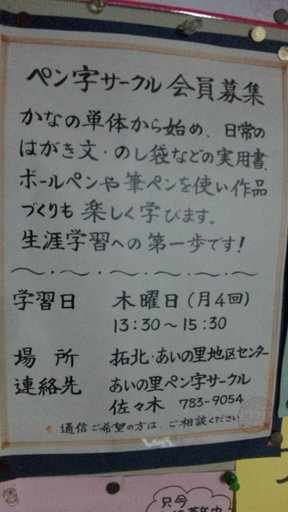 ペン字サークル会員募集
かなの単体から始め、日常の
はがき文・のし袋などの実用書、
ボールペンや筆ペンを使い作品
づくりも楽しく学びます。
生涯学習への第一歩です!
学習日 木曜日(月4回)
13:30～15:30
場所 拓北・あいの里地区センター
連絡先 あいの里ペン字サークル
佐々木 783-9054
通信ご希望の方は、ご相談ください
只今